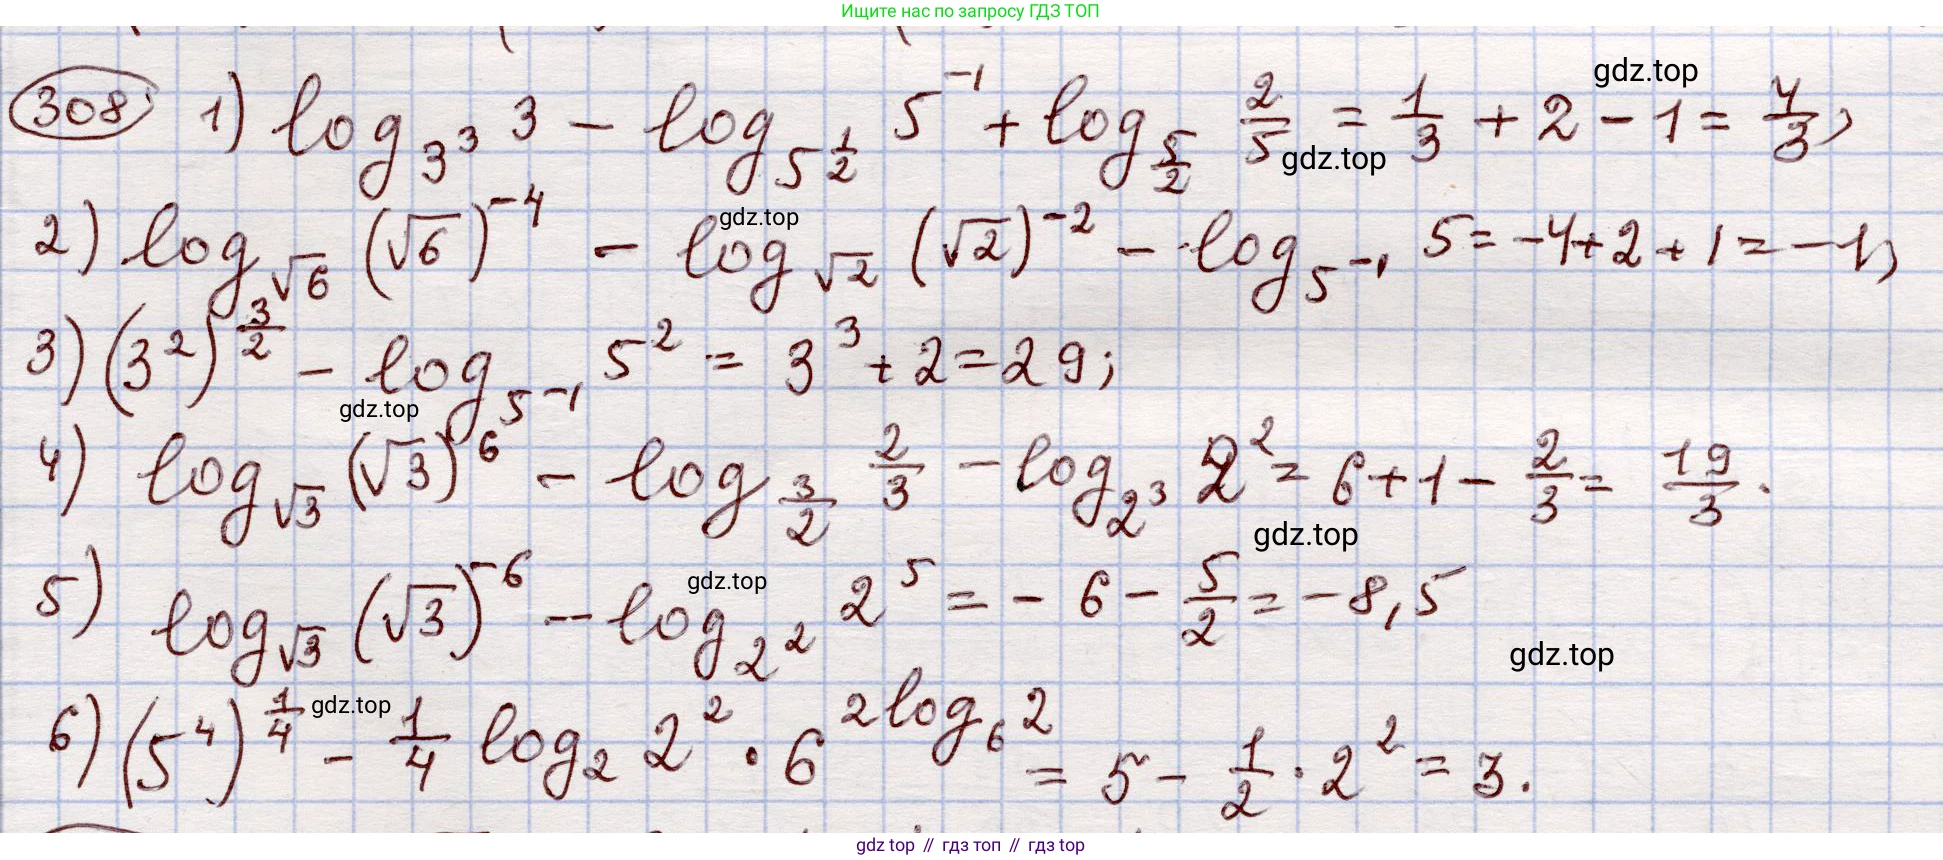 Ищите нас по запросу ГДЗ ТОП
gdz.top
308 1) log_{3^3} 3 − log_{5^{1/2}} 5^{−1} + log_{5/2} 2/5 = 1/3 + 2 − 1 = 4/3;
gdz.top
gdz.top
2) log_{√6} (√6)^{−4} − log_{√2} (√2)^{−2} − log_{5^{−1}} 5 = −4+2+1 = −1;
3) (3^2)^{3/2} − log_{5^{−1}} 5^2 = 3^3 + 2 = 29;
gdz.top
4) log_{√3} (√3)^6 − log_{3/2} 2/3 − log_{2^3} 2^2 = 6 + 1 − 2/3 = 19/3.
gdz.top
gdz.top
5) log_{√3} (√3)^{−6} − log_{2^2} 2^5 = − 6 − 5/2 = −8,5
gdz.top
gdz.top
6) (5^4)^{1/4} − 1/4 log_2 2^2 · 6^{2log_6 2} = 5 − 1/2 · 2^2 = 3.
gdz top // гдз топ // гдз top